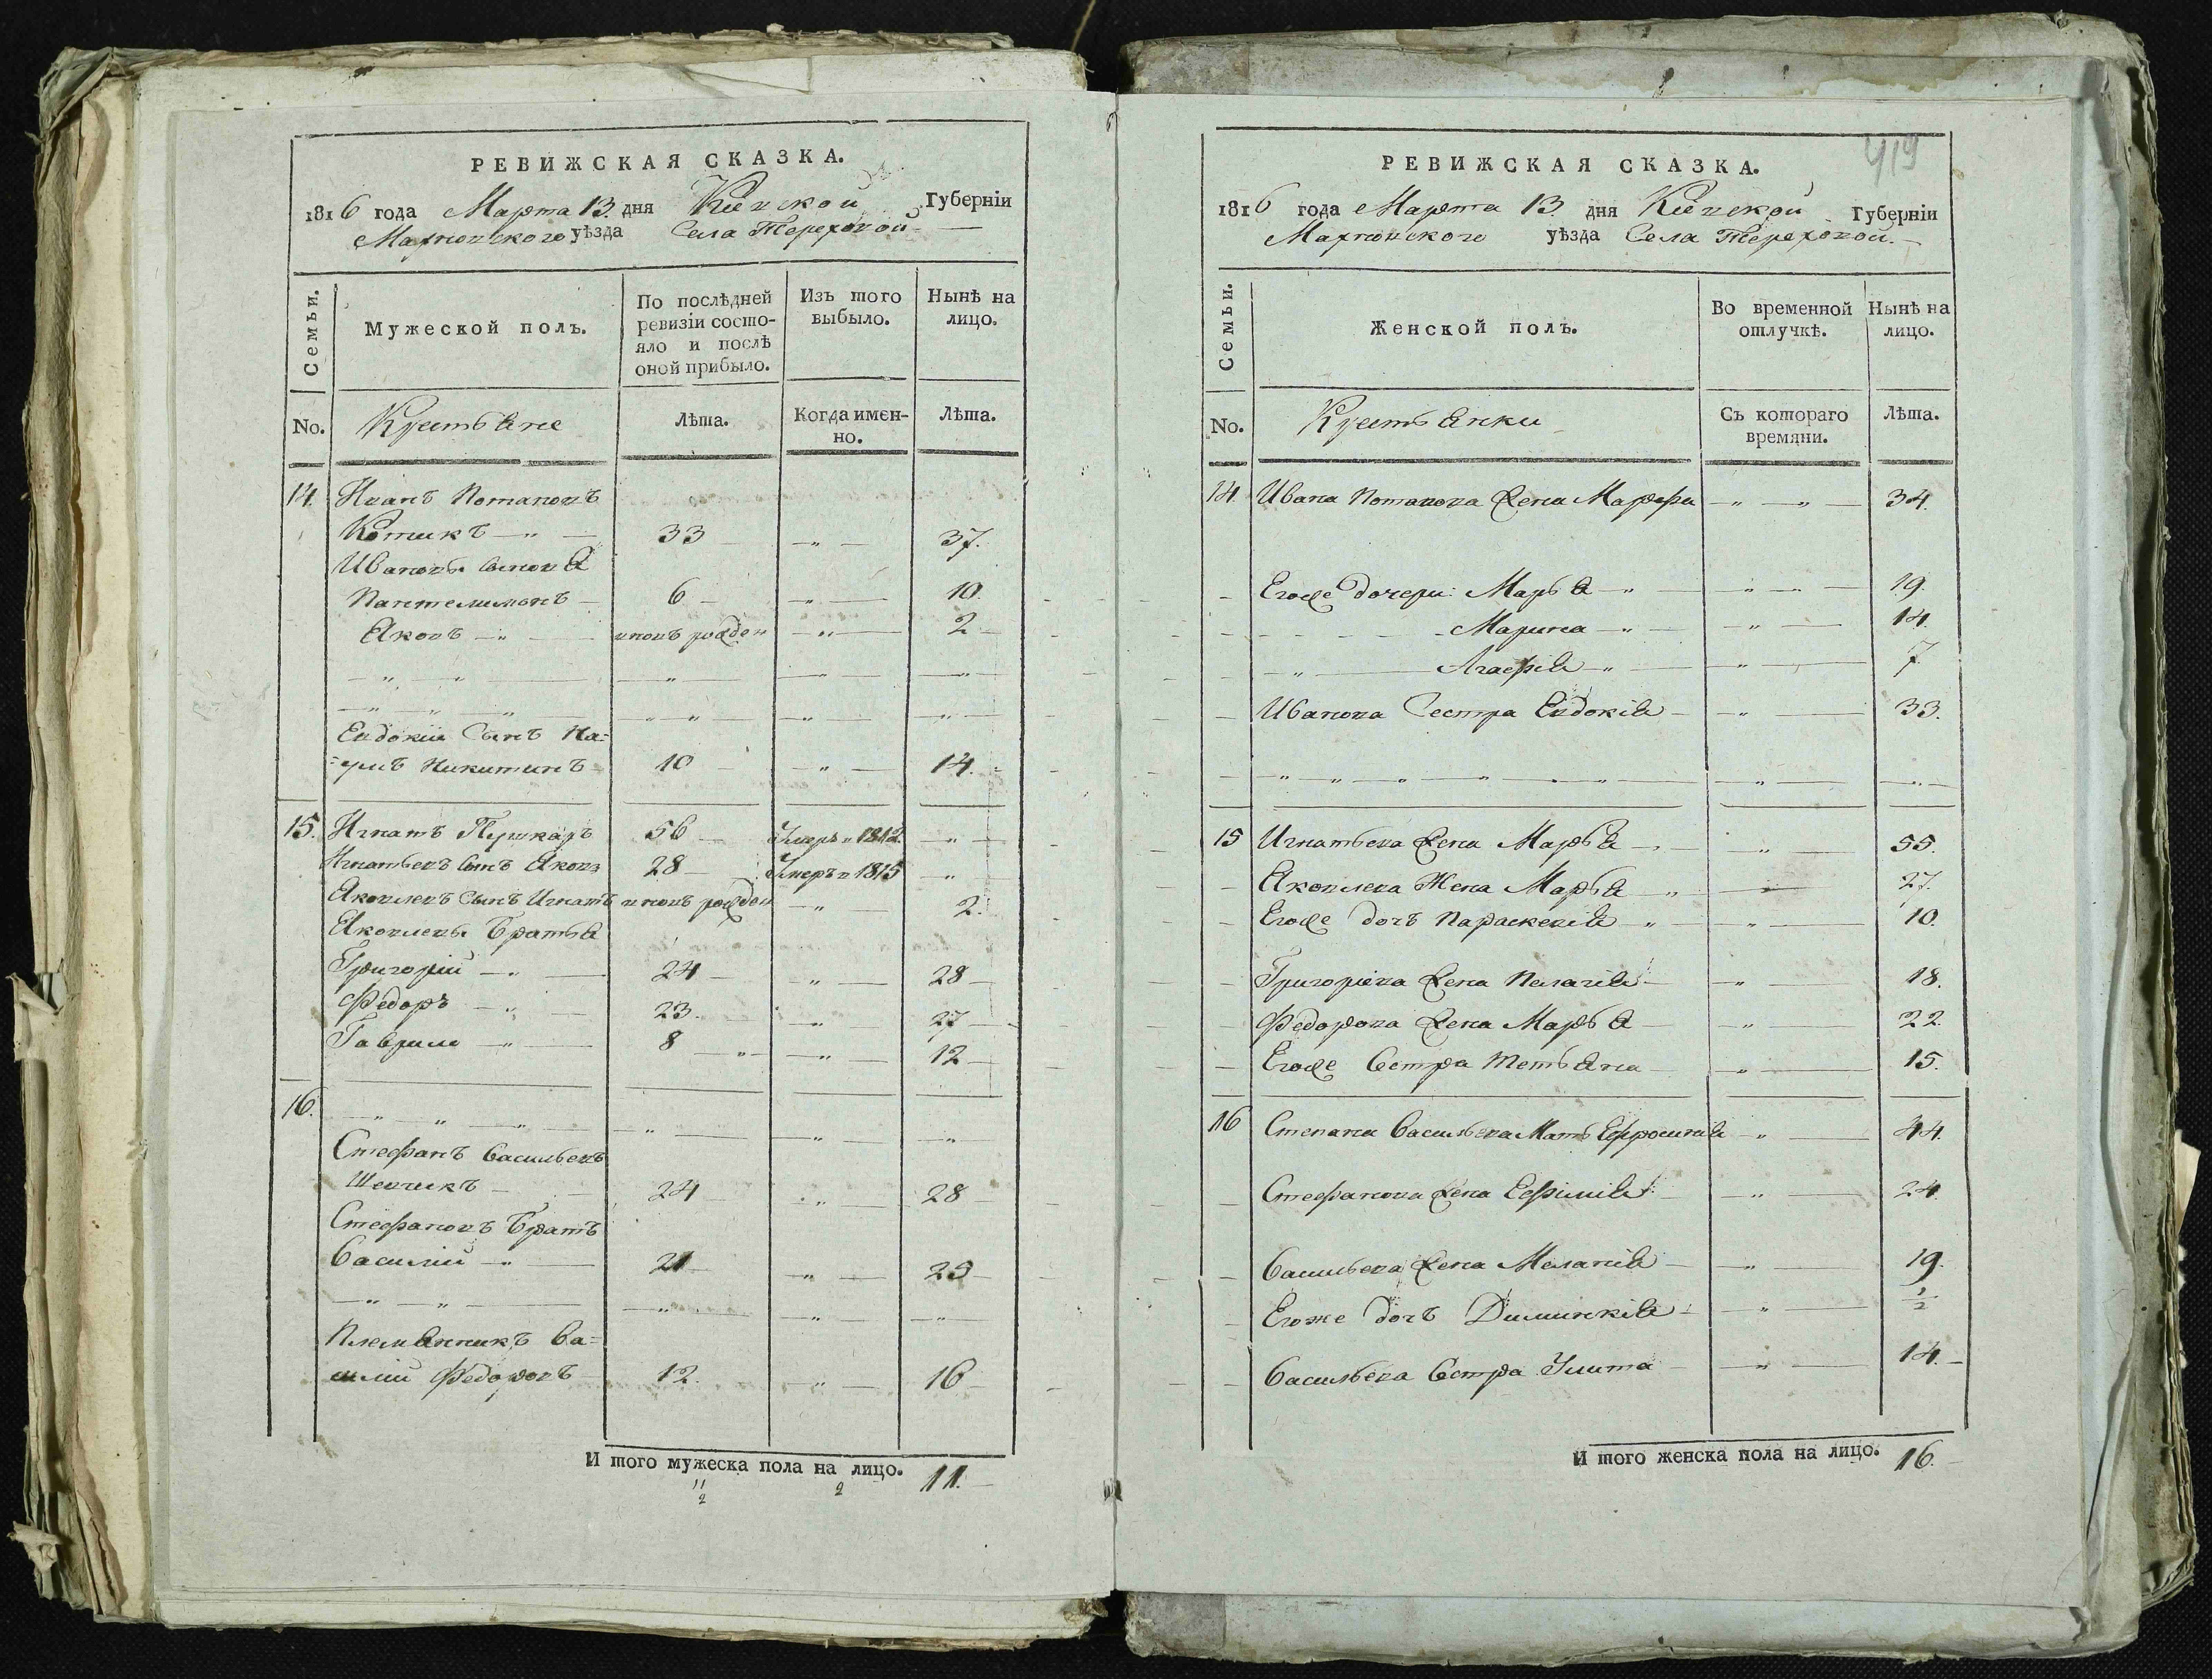 РЕВИЖСКАЯ СКАЗКА.
1816 года Марта 13. дня Кіевской Губерніи
Махновского уѣзда Села Тереховой
Семьи.
Мужеской полъ.
По послѣдней ревизіи состо-
яло и послѣ оной прибыло.
Изъ того выбыло.
Нынѣ на лицо.
No. Крестьяне Лѣта. Когда имен-
но. Лѣта.
14. Иванъ Потаповъ
Котикъ 33 37.
Ивановы сыновя
Пантелимонъ 6 10.
Яковъ вновь рожден 2
Евдокіи Сынъ На=
=умъ Никитинъ 10 14.
15. Игнатъ Пушкаръ 56 Умеръ 1812.
Игнатьевъ сынъ Яковъ 28 Умеръ 1815
Яковлевъ Сынъ Игнатъ вновь рожден 2.
Яковлевы Братья
Григорій 24 28
Федоръ 23. 27
Гаврило 8 12
16.
Стефанъ Васильевъ
Шевчикъ 24 28
Стефановъ Братъ
Василій 21 25
Племянникъ Ва=
силій Федоровъ 12. 16
И того мужеска пола на лицо. 11.
11 2
2
419
РЕВИЖСКАЯ СКАЗКА.
1816 года Марта 13. дня Кіевской Губерніи
Махновского уѣзда Села Тереховой.
Семьи.
Женской полъ.
Во временной отлучкѣ.
Нынѣ на лицо.
No. Крестьянки Съ котораго времяни. Лѣта.
14. Ивана Потапова жена Марфа 34.
Егоже дочери: Марья 19.
Марина 14.
Агафія 7.
Иванова Сестра Евдокія 33.
15 Игнатьева жена Марья 55.
Яковлева Жена Марья 27.
Егоже дочь Параскевія 10.
Григоріева жена Пелагія 18.
Федорова жена Марья 22.
Егоже Сестра Тетьяна 15.
16 Степана Васильева Мать Ефросинія 44.
Стефанова жена Ефимія 24.
Васильева жена Меланія 19.
Егоже дочь Диминкія 1/2
Васильева Сестра Улита 14.
И того женска пола на лицо. 16.